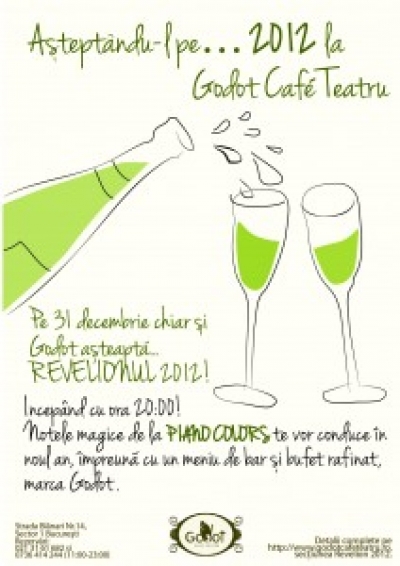 Așteptându-l pe... 2012 la
Godot Café Teatru
Pe 31 decembrie chiar și
Godot așteaptă...
REVELIONUL 2012!
Incepând cu ora 20:00!
Notele magice de la PIANO COLORS te vor conduce în
noul an, împreună cu un meniu de bar și bufet rafinat,
marca Godot.
Strada Blănari Nr.14,
Sector 1 București
Rezervări
0736 414 244 (11:00-23:00)
Godot
Detalii complete pe
http://www.godotcafeteatru.ro,
secțiunea Revelion 2012.